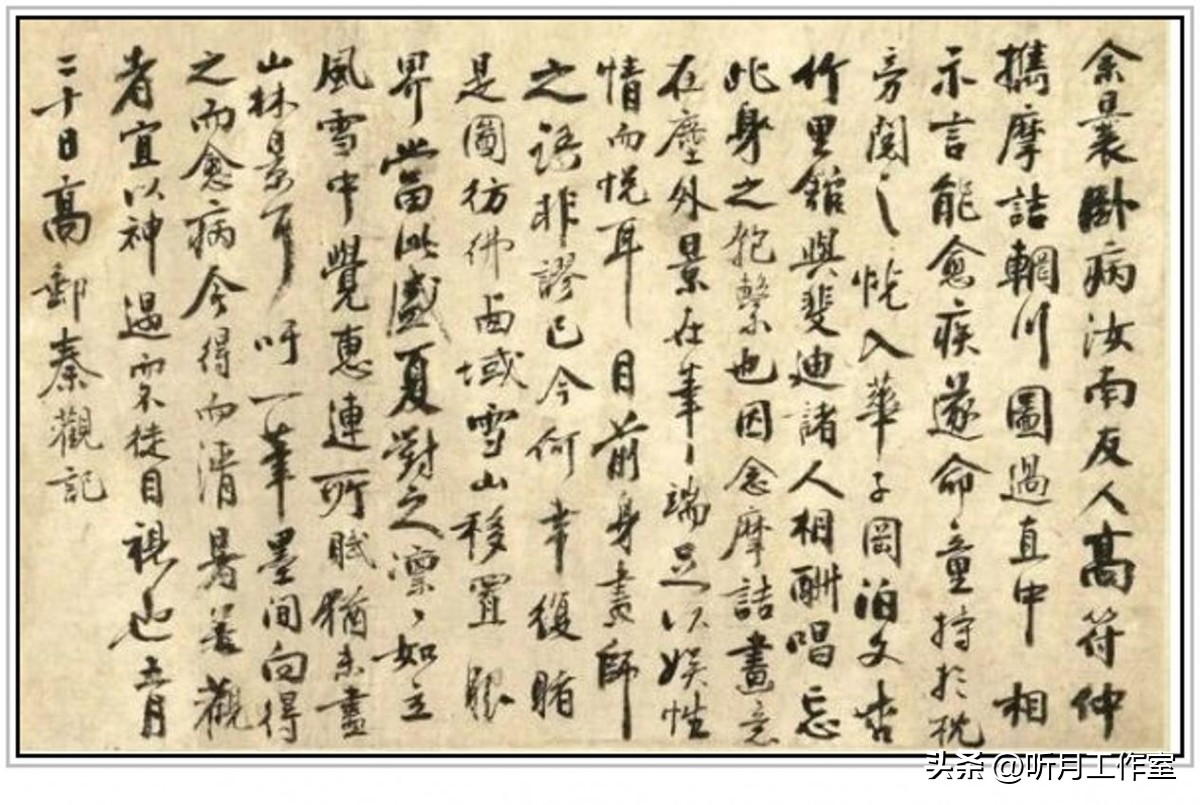 余曩卧病汝南友人高符仲
攜摩詰輞川圖過直中相
示言能愈疾遂命童持於枕
旁閱之恍入華子岡泊文杏
竹里館與斐迪諸人相酬唱忘
此身之匏繫也因念摩詰畫意
在塵外景在筆端足以娱性
情而悦耳目前身畫師
之語非謬已今何幸復睹
是圖彷彿西域雪山移置眼
界當此盛夏對之凜凜如立
風雪中覺惠連所賦猶未盡
山林景耳吁一筆墨間向得
之而愈病今得而清暑善觀
者宜以神遇而不徒目視也五月
二十日高郵秦觀記
头条 @听月工作室